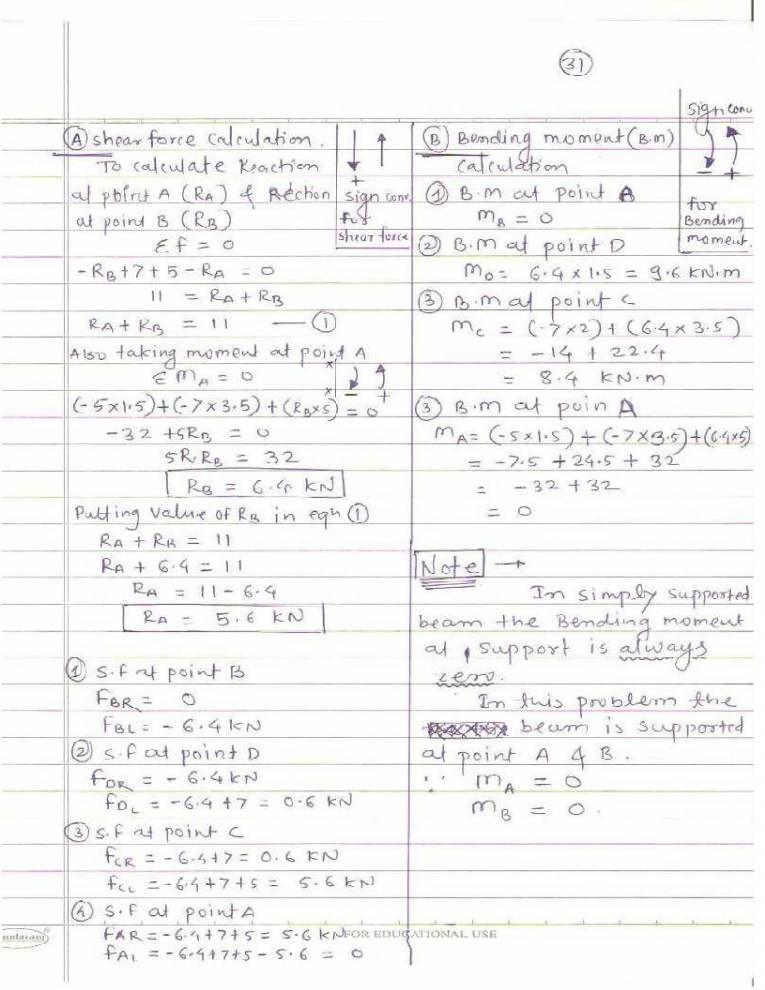 31
Ⓐ shear force calculation.
To calculate Reaction
at point A (RA) & Rection
at point B (RB)
+
sign conv.
for
shear force
Σf = 0
-RB+7+5-RA = 0
11 = RA+RB
RA+RB = 11 — ①
Also taking moment at point A
ΣMA = 0
- +
(-5x1.5)+(-7x3.5)+(RBx5) = 0
-32 +5RB = 0
5R.RB = 32
RB = 6.4 KN
Putting value of RB in eqn ①
RA + RB = 11
RA + 6.4 = 11
RA = 11-6.4
RA = 5.6 KN
① S.F at point B
FBR = 0
FBL = - 6.4 KN
② S.F at point D
FDR = - 6.4 KN
FDL = -6.4 +7 = 0.6 KN
③ S.F at point C
FCR = -6.4+7 = 0.6 KN
FCL = -6.4+7+5 = 5.6 KN
④ S.F at point A
FAR = -6.4+7+5 = 5.6 KN
FAL = -6.4+7+5-5.6 = 0
Ⓑ Bending moment (B.m)
calculation
Sign conv
- +
for
Bending
moment.
① B.M at point B
MB = 0
② B.M at point D
MD = 6.4 x 1.5 = 9.6 KN.m
③ B.M at point C
MC = (-7x2) + (6.4 x 3.5)
= -14 + 22.4
= 8.4 KN.m
③ B.M at poin A
MA = (-5x1.5) + (-7x3.5)+(6.4x5)
= -7.5 +24.5 + 32
= -32 +32
= 0
Note →
In simply supported
beam the Bending moment
at support is always
zero.
In this problem the
beam is supported
at point A & B.
∵ MA = 0
MB = 0.
FOR EDUCATIONAL USE